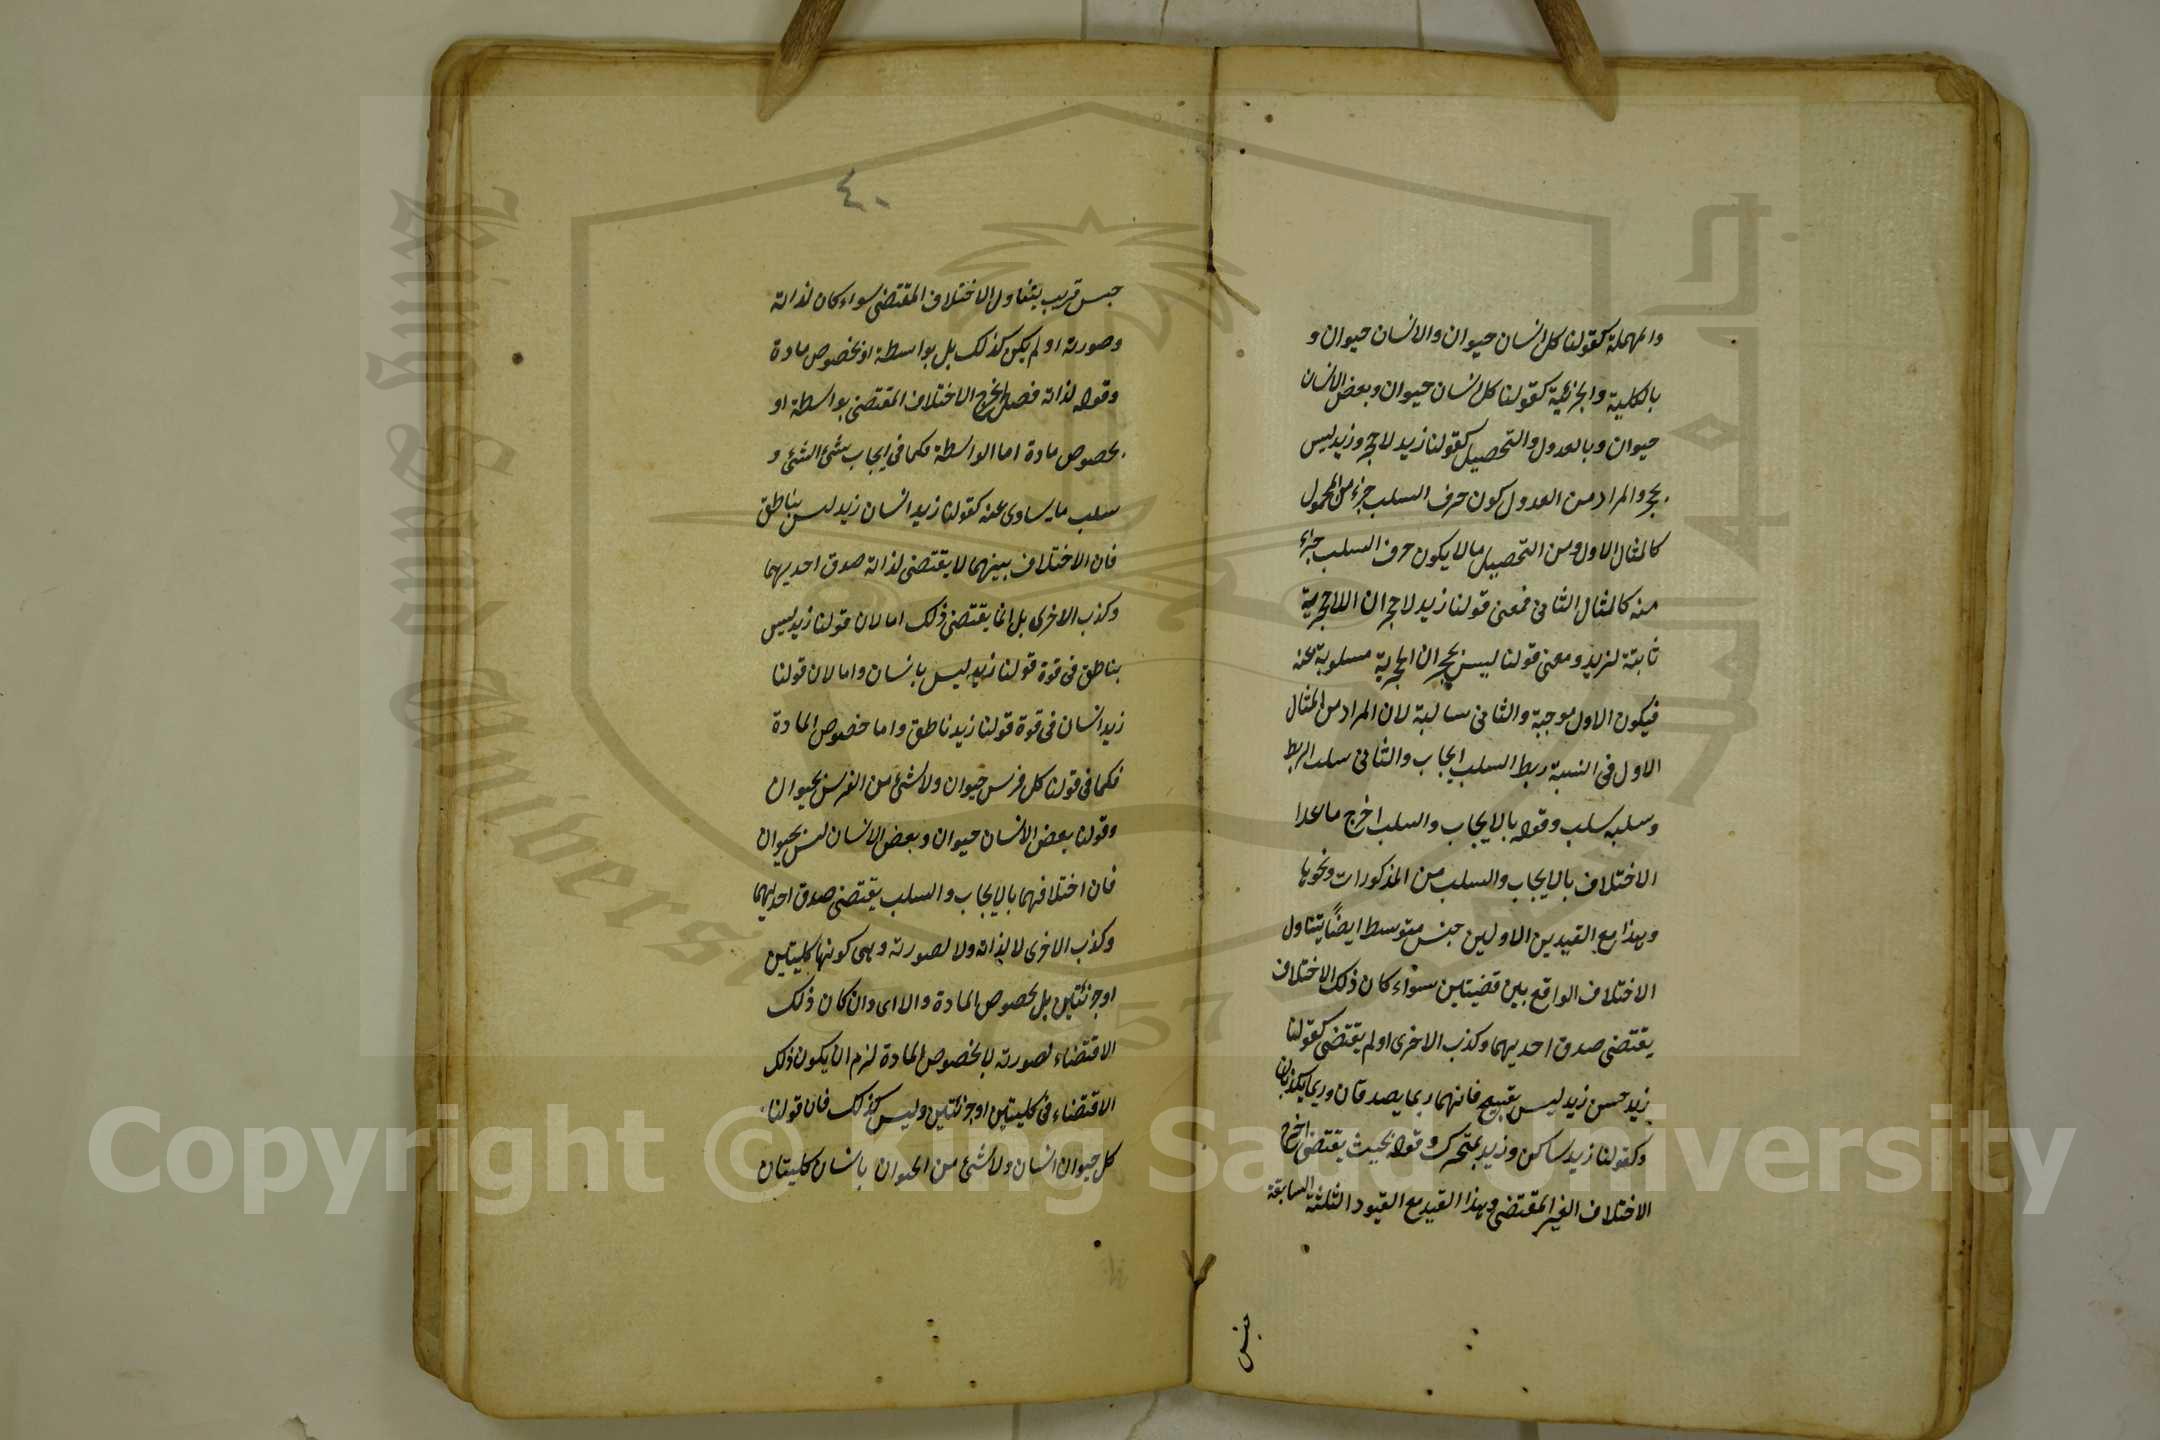 والمهملة كقولنا كل انسان حيوان والانسان حيوان و
بالكلية والجزئية كقولنا كل انسان حيوان وبعض الانسان
حيوان وبالعدول والتحصيل كقولنا زيد لا حجر وزيد ليس
بحجر والمراد من العدول كون حرف السلب جزء من المحمول
كالمثال الاول ومن التحصيل ما لا يكون حرف السلب جزء
منه كالمثال الثاني فمعنى قولنا زيد لا حجر ان اللاحجرية
ثابتة لزيد ومعنى قولنا ليس بحجر ان الحجرية مسلوبة عنه
فيكون الاول موجبة والثاني سالبة لان المراد من المثال
الاول في النسبة ربط السلب ايجاب والثاني سلب الربط
وسلبه سلب وقوله بالايجاب والسلب اخرج ما عدا
الاختلاف بالايجاب والسلب من المذكورات ونحوها
وهذا مع القيدين الاولين جنس متوسط ايضاً يتناول
الاختلاف الواقع بين قضيتين سواء كان ذلك الاختلاف
يقتضى صدق احديهما وكذب الاخرى او لم يقتضى كقولنا
زيد حسن زيد ليس بقبيح فانهما ربما يصدقان وربما يكذبان
وكقولنا زيد ساكن وزيد بمتحرك وقوله بحيث يقتضى اخرج
الاختلاف الغير المقتضى وهذا القيد مع القيود الثلثة السابقة
جنس
٤٠
جنس قريب يتناول الاختلاف المقتضى سواء كان لذاته
وصورته او لم يكن كذلك بل بواسطة او بخصوص مادة
وقوله لذاته فصل يخرج الاختلاف المقتضى بواسطة او
بخصوص مادة اما الواسطة فكما في ايجاب شئ لشئ و
سلب ما يساوى عنه كقولنا زيد انسان زيد ليس بناطق
فان الاختلاف بينهما لا يقتضى لذاته صدق احديهما
وكذب الاخرى بل انما يقتضى ذلك اما لان قولنا زيد ليس
بناطق في قوة قولنا زيد ليس بانسان واما لان قولنا
زيد انسان في قوة قولنا زيد ناطق واما خصوص المادة
فكما في قولنا كل فرس حيوان ولا شئ من الفرس بحيوان
وقولنا بعض الانسان حيوان وبعض الانسان ليس بحيوان
فان اختلافهما بالايجاب والسلب يقتضى صدق احديهما
وكذب الاخرى لا لذاته ولا لصورته وهى كونها كليتين
او جزئتين بل بخصوص المادة والا اى وان كان ذلك
الاقتضاء لصورته لا بخصوص المادة لزم ان يكون ذلك
الاقتضاء في كليتين او جزئتين وليس كذلك فان قولنا
كل حيوان انسان ولا شئ من الحيوان بانسان كليتان
King Saud University
1957
Copyright © King Saud University